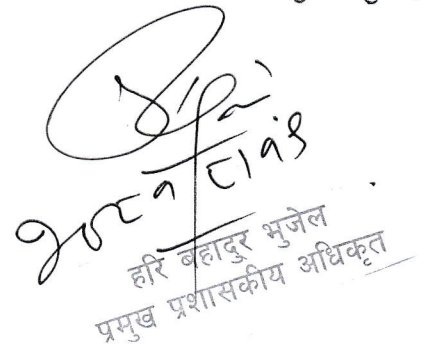 २०८१।८।१९
हरि बहादुर भुजेल
प्रमुख प्रशासकीय अधिकृत